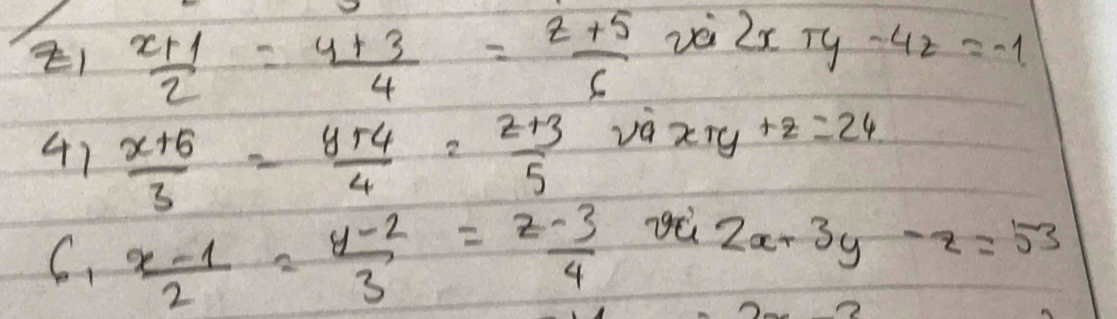 2, (x+1)/2 = (y+3)/4 = (z+5)/6 và 2x+y-4z=-1
4, (x+6)/3 = (y+4)/4 = (z+3)/5 và x+y+z=24
6, (x-1)/2 = (y-2)/3 = (z-3)/4 và 2x+3y-z=53